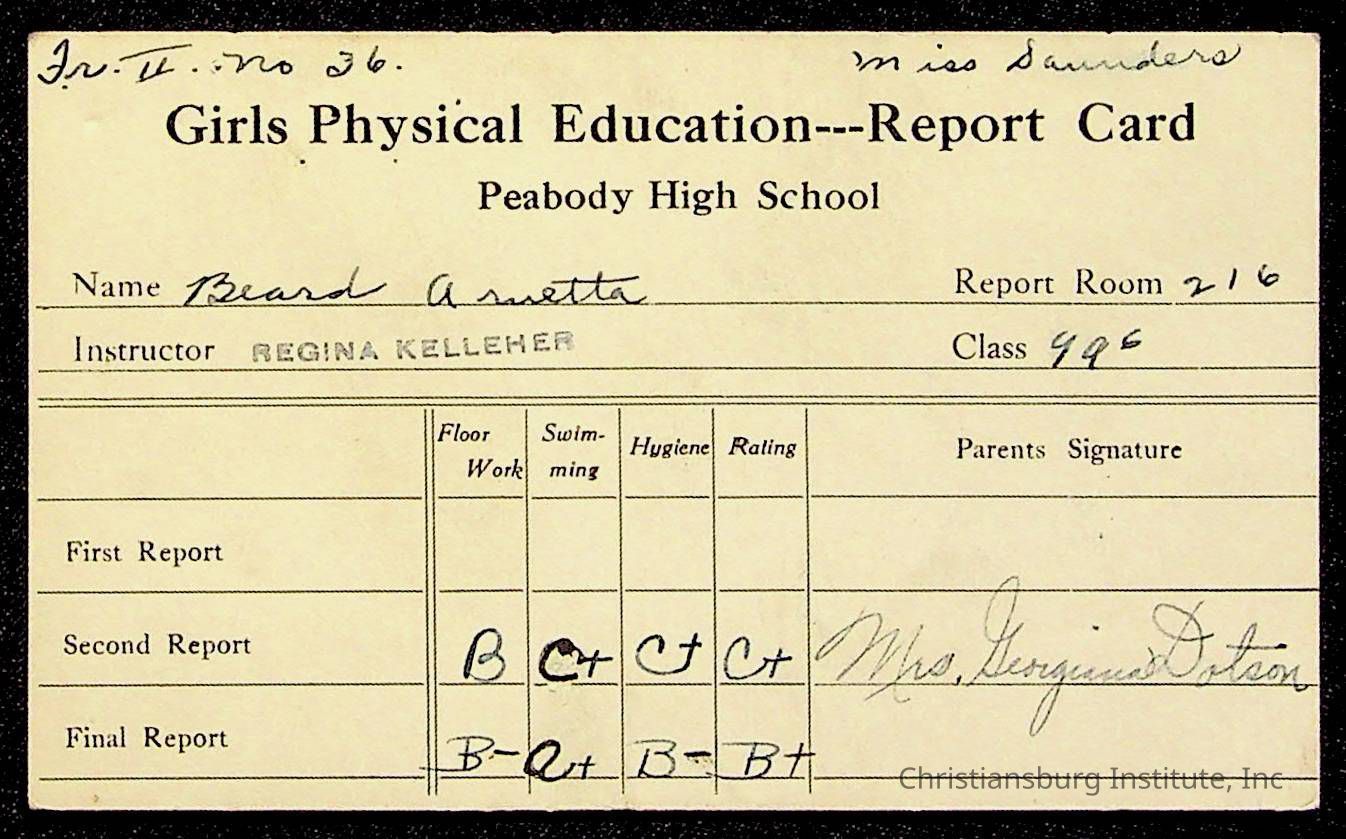 Fr. II. No 36. Miss Saunders
Girls Physical Education---Report Card
Peabody High School
Name Beard Arnetta Report Room 216
Instructor REGINA KELLEHER Class
Floor Work Swim-ming Hygiene Rating Parents Signature
First Report
Second Report B C+ C+ C+ Mrs. Georgiana Dotson
Final Report B- a+ B- B+
Christiansburg Institute, Inc